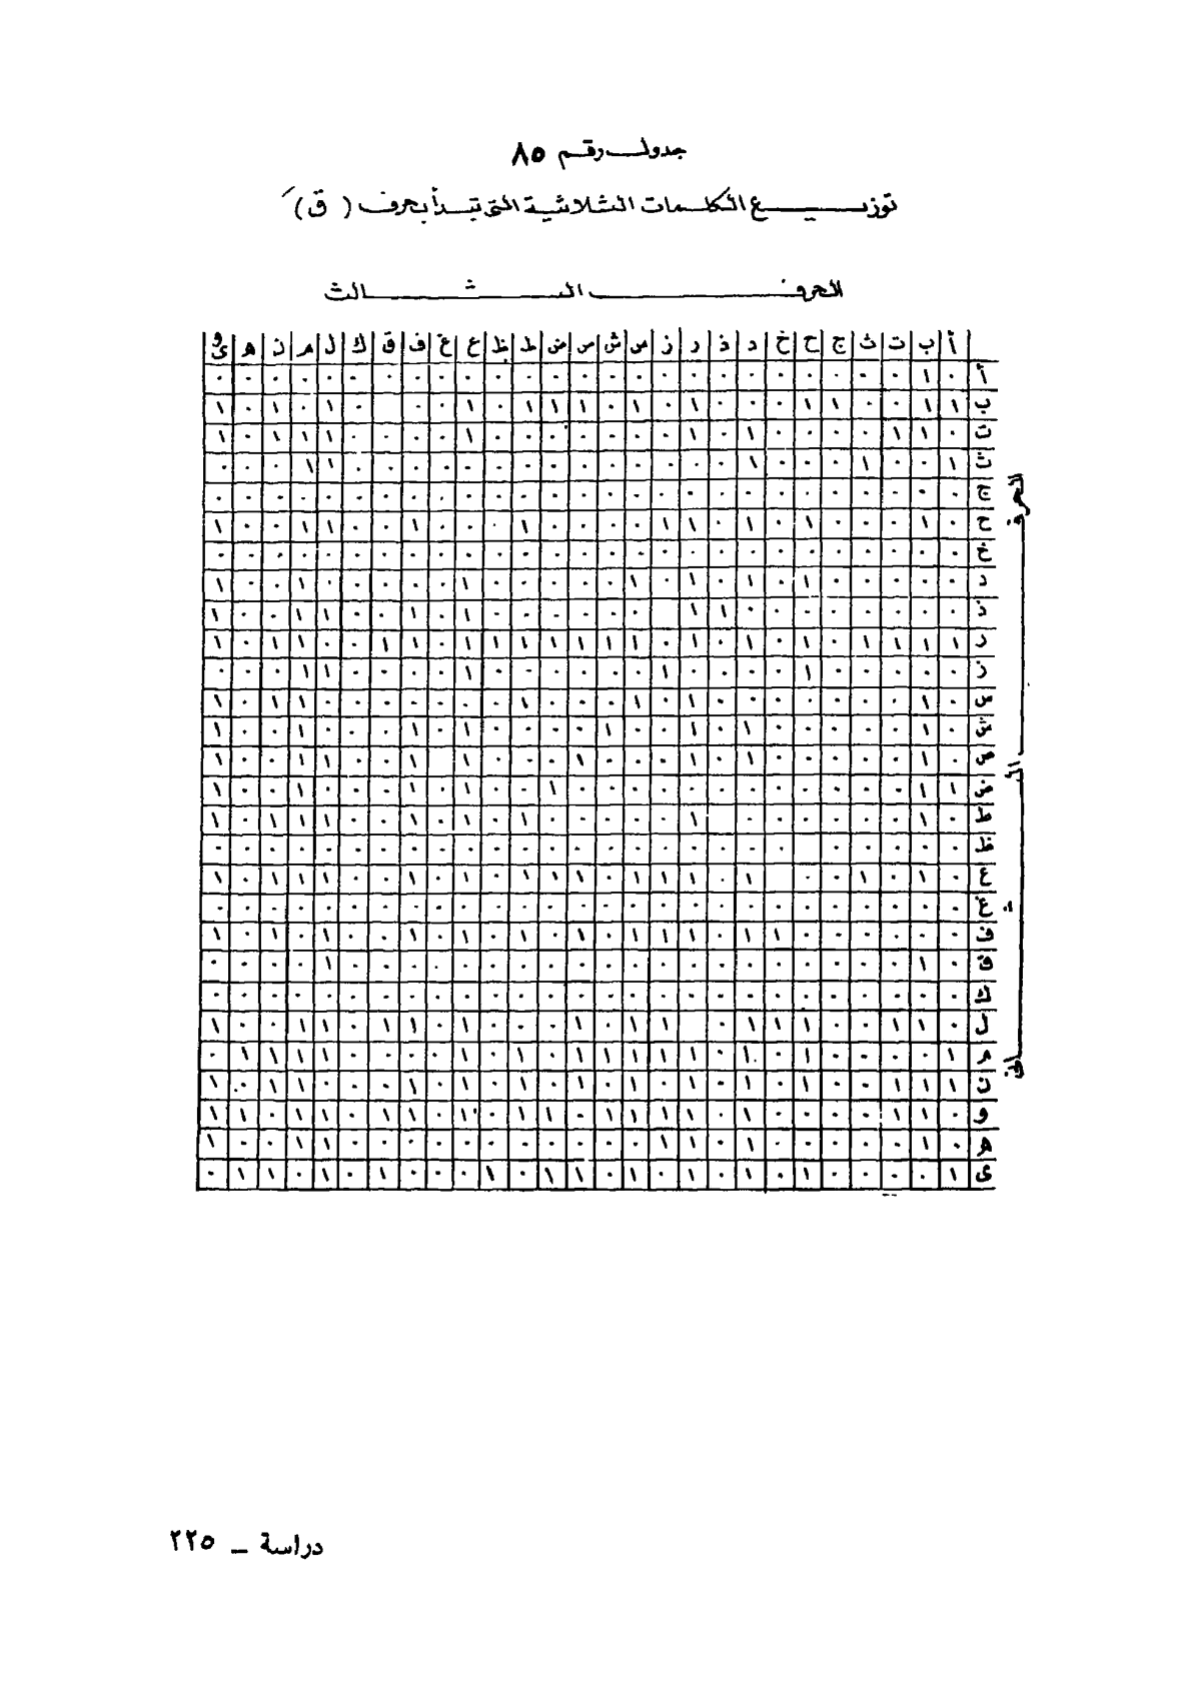 جدول رقم ٨٥
توزيع الكلمات الثلاثية التى تبدأ بحرف ( ق )
الحرف الثالث
أ ب ت ث ج ح خ د ذ ر ز س ش ص ض ط ظ ع غ ف ق ك ل م ن ه و ى
أ ٠ ١ ٠ ٠ ٠ ٠ ٠ ٠ ٠ ٠ ٠ ٠ ٠ ٠ ٠ ٠ ٠ ٠ ٠ ٠ ٠ ٠ ٠ ٠ ٠ ٠ ٠
ب ١ ١ ٠ ٠ ١ ١ ٠ ٠ ٠ ١ ٠ ١ ٠ ١ ١ ١ ٠ ١ ٠ ٠ ٠ ١ ٠ ١ ٠ ١
ت ٠ ١ ١ ٠ ٠ ٠ ٠ ١ ٠ ١ ٠ ٠ ٠ ٠ ٠ ٠ ٠ ١ ٠ ٠ ٠ ٠ ١ ١ ١ ٠ ١
ث ١ ٠ ٠ ١ ٠ ٠ ٠ ١ ٠ ٠ ٠ ٠ ٠ ٠ ٠ ٠ ٠ ٠ ٠ ٠ ٠ ٠ ١ ١ ٠ ٠ ٠
ج ٠ ٠ ٠ ٠ ٠ ٠ ٠ ٠ ٠ ٠ ٠ ٠ ٠ ٠ ٠ ٠ ٠ ٠ ٠ ٠ ٠ ٠ ٠ ٠ ٠ ٠ ٠
ح ٠ ١ ٠ ٠ ٠ ١ ٠ ١ ٠ ١ ١ ٠ ٠ ٠ ٠ ١ ٠ ٠ ٠ ١ ٠ ٠ ١ ١ ٠ ٠ ١
خ ٠ ٠ ٠ ٠ ٠ ٠ ٠ ٠ ٠ ٠ ٠ ٠ ٠ ٠ ٠ ٠ ٠ ٠ ٠ ٠ ٠ ٠ ٠ ٠ ٠ ٠ ٠
د ٠ ٠ ٠ ٠ ٠ ١ ٠ ١ ٠ ١ ٠ ١ ٠ ٠ ٠ ٠ ٠ ١ ٠ ٠ ٠ ٠ ٠ ١ ٠ ٠ ١
ذ ٠ ٠ ٠ ٠ ٠ ٠ ٠ ٠ ١ ١ ٠ ٠ ٠ ٠ ٠ ٠ ١ ٠ ١ ٠ ٠ ١ ١ ٠ ٠ ١
ر ١ ١ ١ ١ ٠ ١ ٠ ١ ٠ ١ ٠ ١ ١ ١ ١ ١ ١ ١ ٠ ١ ١ ٠ ٠ ١ ١ ٠ ١
ز ٠ ٠ ٠ ٠ ٠ ١ ٠ ٠ ٠ ٠ ١ ٠ ٠ ٠ ٠ ٠ ٠ ١ ٠ ٠ ٠ ٠ ١ ١ ٠ ٠ ٠
س ٠ ١ ٠ ٠ ٠ ٠ ٠ ٠ ٠ ١ ٠ ١ ٠ ٠ ٠ ١ ٠ ٠ ٠ ٠ ٠ ٠ ٠ ١ ١ ٠ ١
ش ٠ ١ ٠ ٠ ٠ ٠ ٠ ١ ٠ ١ ٠ ٠ ١ ٠ ٠ ٠ ٠ ١ ٠ ١ ٠ ٠ ٠ ١ ٠ ٠ ١
ص ٠ ١ ٠ ٠ ٠ ٠ ٠ ١ ٠ ١ ٠ ٠ ٠ ١ ٠ ٠ ٠ ١ ١ ٠ ٠ ١ ١ ٠ ٠ ١
ض ١ ١ ٠ ٠ ٠ ٠ ٠ ٠ ٠ ٠ ٠ ٠ ٠ ٠ ١ ٠ ٠ ١ ٠ ١ ٠ ٠ ٠ ١ ٠ ٠ ١
ط ٠ ١ ٠ ٠ ٠ ٠ ٠ ٠ ١ ٠ ٠ ٠ ٠ ٠ ١ ٠ ١ ٠ ١ ٠ ٠ ١ ١ ١ ٠ ١
ظ ٠ ٠ ٠ ٠ ٠ ٠ ٠ ٠ ٠ ٠ ٠ ٠ ٠ ٠ ٠ ٠ ٠ ٠ ٠ ٠ ٠ ٠ ٠ ٠ ٠ ٠
ع ٠ ١ ٠ ١ ٠ ٠ ١ ٠ ١ ١ ١ ٠ ١ ١ ١ ٠ ١ ٠ ١ ٠ ٠ ١ ١ ١ ٠ ١
غ ٠ ٠ ٠ ٠ ٠ ٠ ٠ ٠ ٠ ٠ ٠ ٠ ٠ ٠ ٠ ٠ ٠ ٠ ٠ ٠ ٠ ٠ ٠ ٠ ٠ ٠ ٠
ف ٠ ٠ ٠ ٠ ٠ ٠ ١ ١ ٠ ١ ١ ١ ٠ ١ ٠ ١ ٠ ١ ٠ ١ ٠ ٠ ١ ٠ ١ ٠ ١
ق ٠ ١ ٠ ٠ ٠ ٠ ٠ ٠ ٠ ٠ ٠ ٠ ٠ ٠ ٠ ٠ ٠ ٠ ٠ ٠ ٠ ٠ ١ ٠ ٠ ٠ ٠
ك ٠ ٠ ٠ ٠ ٠ ٠ ٠ ٠ ٠ ٠ ٠ ٠ ٠ ٠ ٠ ٠ ٠ ٠ ٠ ٠ ٠ ٠ ٠ ٠ ٠ ٠ ٠
ل ٠ ١ ١ ٠ ٠ ١ ١ ١ ٠ ١ ١ ٠ ١ ٠ ٠ ٠ ١ ٠ ١ ١ ٠ ١ ١ ٠ ٠ ١
م ١ ٠ ٠ ٠ ٠ ١ ٠ ١ ٠ ١ ١ ١ ١ ١ ٠ ١ ٠ ١ ٠ ٠ ٠ ٠ ١ ١ ١ ١ ٠
ن ١ ١ ١ ٠ ٠ ١ ٠ ١ ٠ ١ ٠ ١ ٠ ١ ٠ ١ ٠ ١ ٠ ١ ٠ ٠ ١ ١ ١ ٠ ١
و ٠ ١ ١ ٠ ٠ ٠ ٠ ١ ٠ ١ ١ ١ ١ ٠ ١ ١ ٠ ١ ٠ ١ ١ ٠ ١ ١ ٠ ١ ١
ه ٠ ١ ٠ ٠ ٠ ٠ ٠ ١ ٠ ١ ١ ٠ ٠ ٠ ٠ ٠ ٠ ٠ ٠ ٠ ٠ ٠ ١ ١ ٠ ٠ ١
ى ١ ٠ ٠ ٠ ٠ ١ ٠ ١ ٠ ١ ٠ ١ ٠ ١ ١ ٠ ١ ٠ ٠ ٠ ١ ٠ ١ ٠ ١ ١ ٠
الحرف الثانى
دراسة ــ ٢٢٥